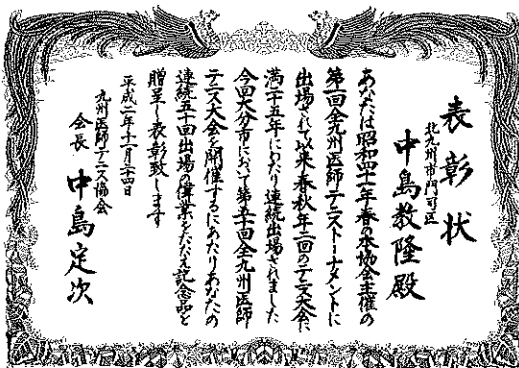 表彰状
北九州市門司区
中島教隆殿
あなたは昭和四十一年春の本協会主催の
第一回全九州医師テニストーナメントに
出場されて以来春秋年二回のテニス大会に
満二十五年にわたり連続出場されました
今回大分市において第五十回全九州医師
テニス大会を開催するにあたりあなたの
連続五十回出場の偉業をたたえ記念品を
贈呈し表彰致します
平成二年十一月二十四日
九州医師テニス協会
会長 中島定次